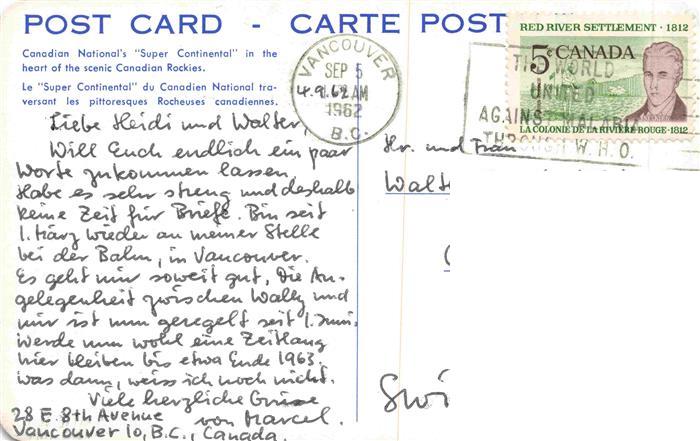 POST CARD - CARTE POST
Canadian National's "Super Continental" in the
heart of the scenic Canadian Rockies.
Le "Super Continental" du Canadien National tra-
versant les pittoresques Rocheuses canadiennes.
VANCOUVER
SEP 5
AM
1962
B.C.
THE WORLD
UNITED
AGAINST MALARIA
THROUGH W.H.O.
RED RIVER SETTLEMENT · 1812
5¢ CANADA
LA COLONIE DE LA RIVIÈRE ROUGE · 1812
4.9.62
Liebe Heidi und Walter,
Will Euch endlich ein paar
Worte zukommen lassen,
Habe es sehr streng und deshalb
keine Zeit für Briefe. Bin seit
1. März wieder an meiner Stelle
bei der Bahn, in Vancouver.
Es geht mir soweit gut, Die An-
gelegenheit zwischen Wally und
mir ist nun geregelt seit 1. Juni.
Werde nun wohl eine Zeitlang
hier bleiben bis etwa Ende 1963.
was dann, weiss ich noch nicht.
Viele herzliche Grüsse
von Marcel.
28 E. 8th Avenue
Vancouver 10, B.C., Canada.
Hr. und Frau
Walt
Swi